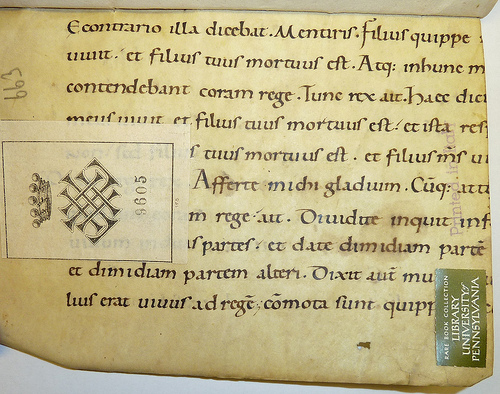 E contrario illa dicebat. Mentiris. Filius quippe
uiuit. et filius tuus mortuus est. Atq: in hunc m
contendebant coram rege. Tunc rex ait. Haec dici
meus uiuit et filius tuus mortuus est. et ista res
s tuus mortuus est. et filius ms ui
Afferte michi gladium. Cūq: attu
m rege. ait. Diuidite inquit inf
s partes. et date dimidiam partē
et dimidiam partem alteri. Dixit autē mu
lius erat uiuus ad regē. cōmota sunt quipp
663
9605
RARE BOOK COLLECTION
LIBRARY
UNIVERSITY of
PENNSYLVANIA